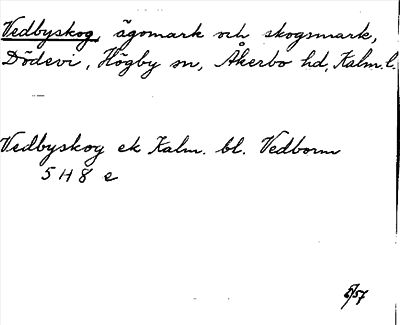 Vedbyskog, ägomark och skogsmark,
Dödevi, Högby sn, Åkerbo hd, Kalm.l.
Vedbyskog ek Kalm. bl. Vedborm
5 H 8 e
6/57